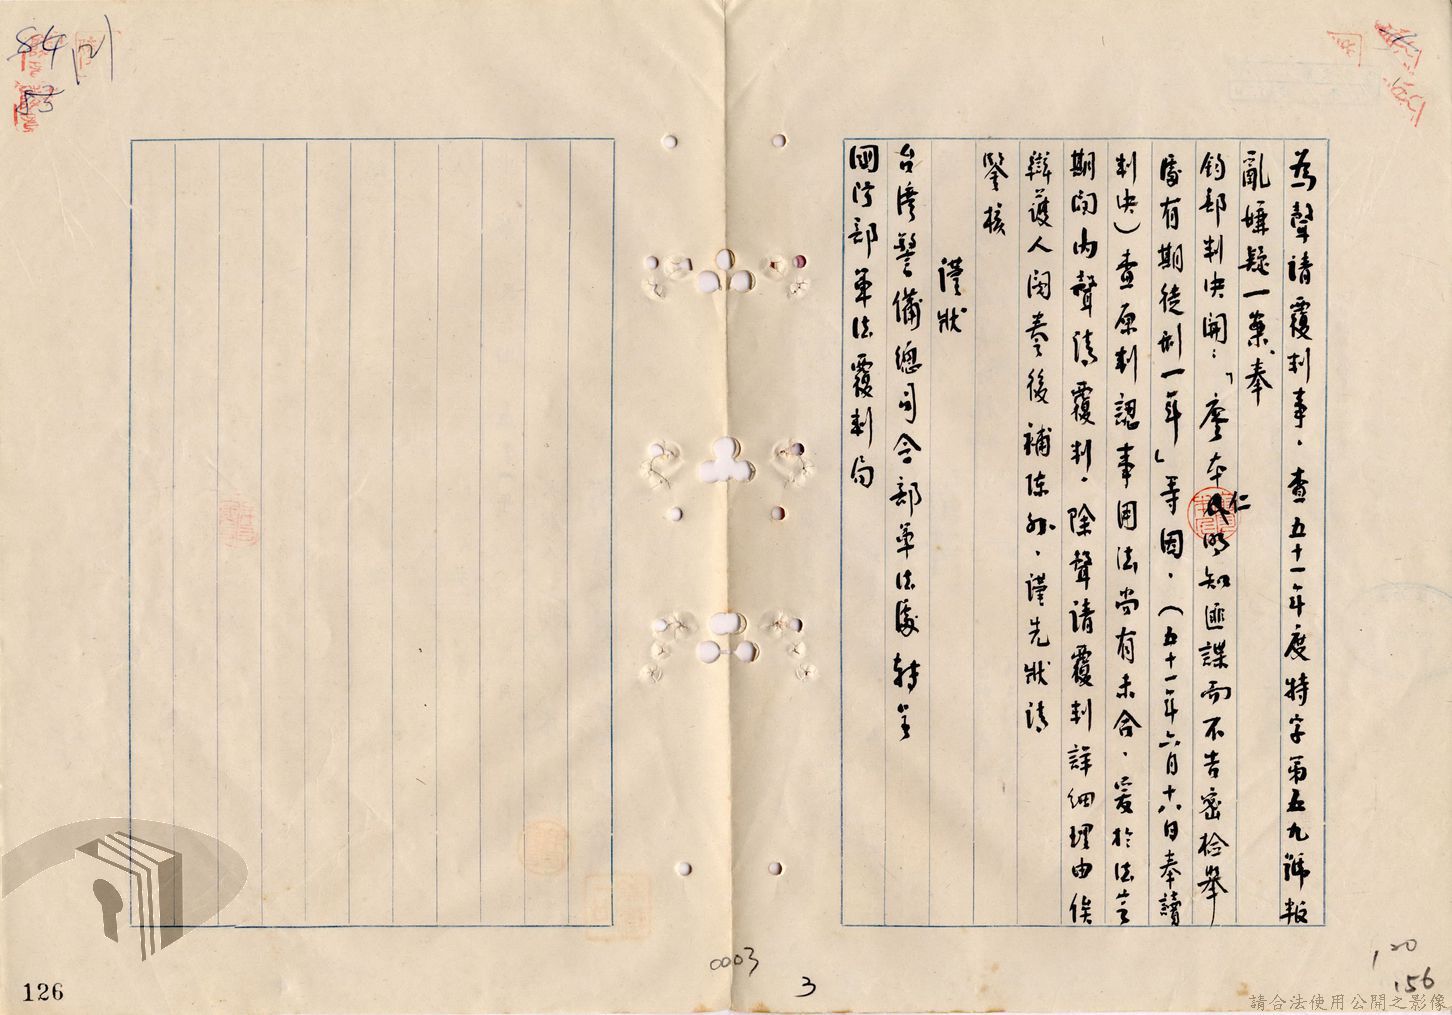 為聲請覆判事．查五十一年度特字第五九號叛
亂嫌疑一案、奉
鈞部判決開：「廖本仁明知匪諜而不告密檢舉
處有期徒刑一年」等因．（五十一年六月十六日奉讀
判決）查原判認事用法尚有未合．爰於法定
期間內聲請覆判．除聲請覆判詳細理由俟
辯護人閱卷後補陳外．謹先狀請
鑒核
謹狀
台灣警備總司令部軍法處轉呈
國防部軍法覆判局
84
121
53
0003
3
120
156
126
請合法使用公開之影像